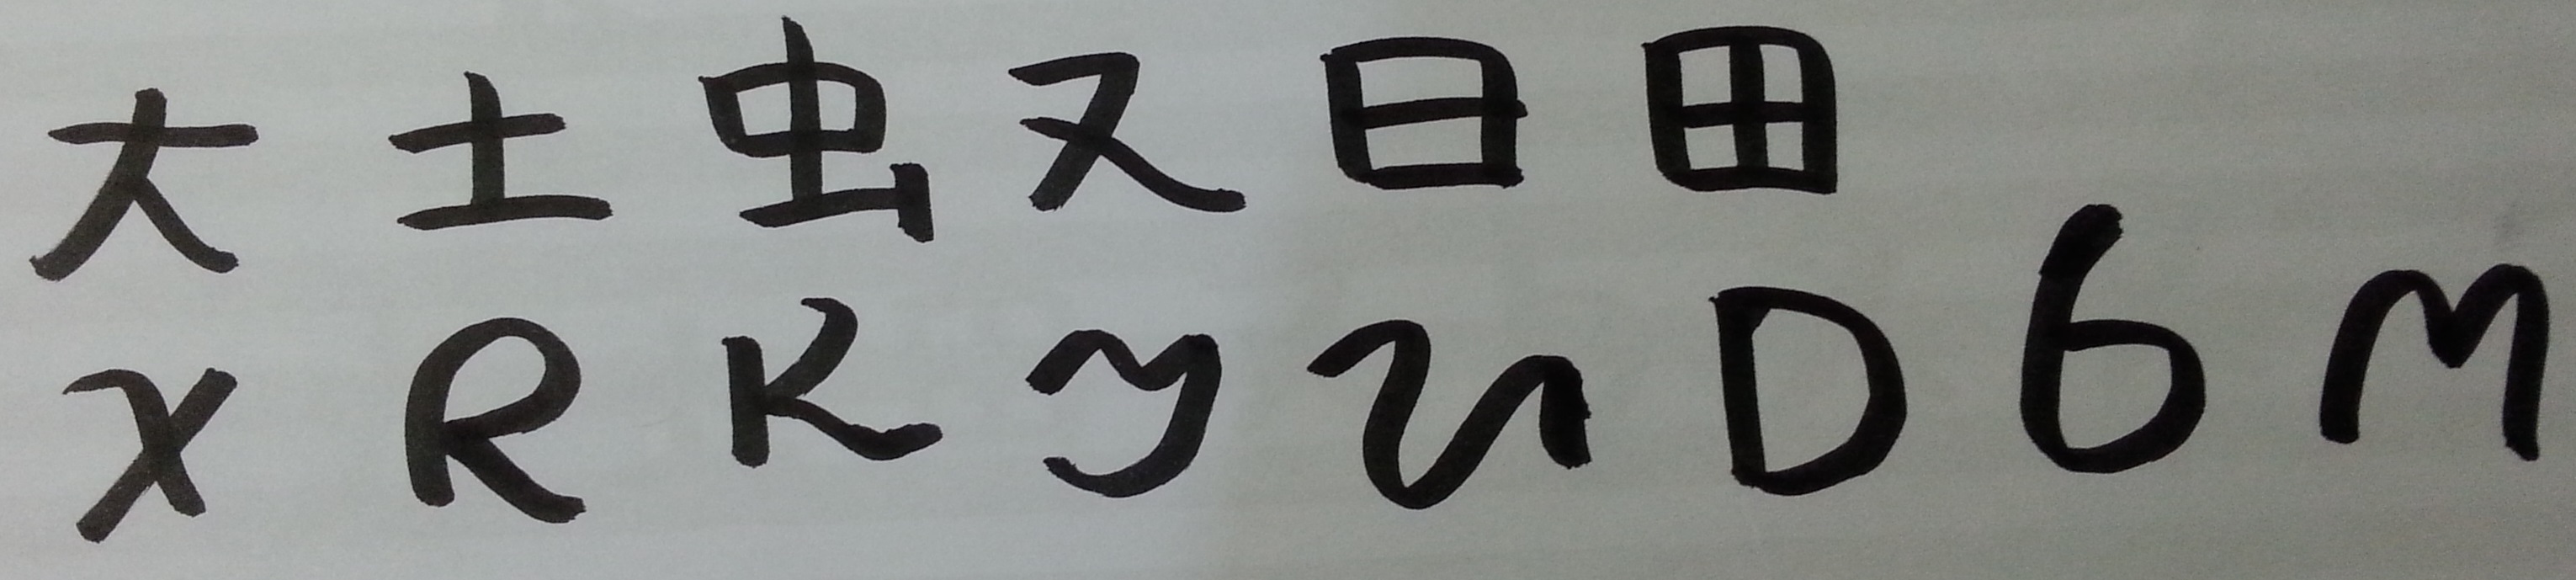 大 土 虫 又 日 田
X R K y n D 6 M